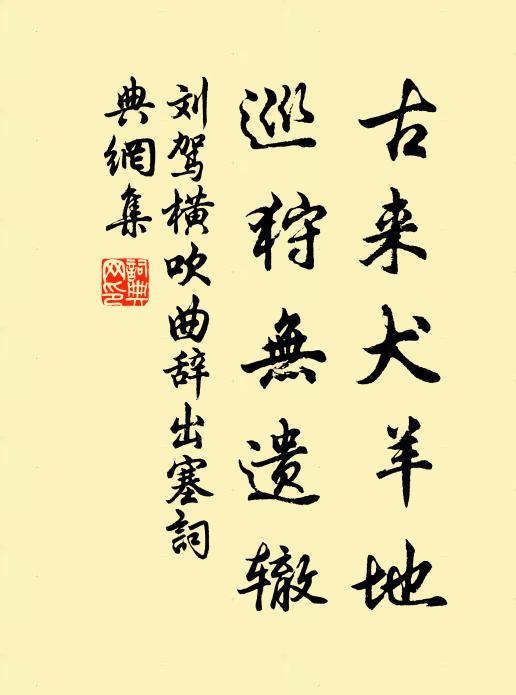 古来犬羊地
巡狩無遗辙
刘驾横吹曲辞出塞詞
典網集
詞典網印